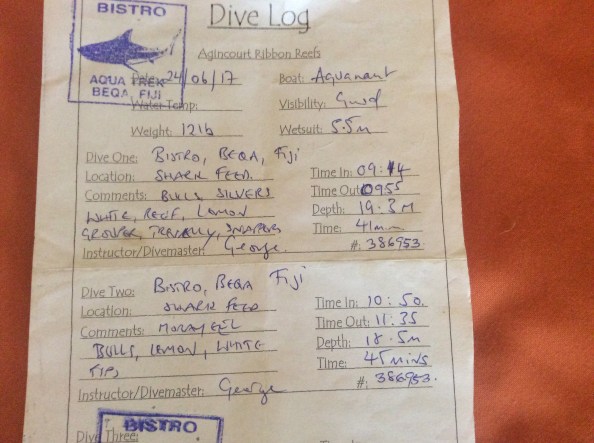 BISTRO
AQUA TREK
BEQA, FIJI
Dive Log
Agincourt Ribbon Reefs
Date: 24/06/17 Boat: Aquanaut
Water Temp: Visibility: Good
Weight: 12lb Wetsuit: 5.5m
Dive One: BISTRO, BEQA, Fiji
Location: SHARK FEED. Time In: 09:14
Comments: BULLS SILVERS Time Out: 0955
WHITE, REEF, LEMON Depth: 19.3M
GROUPER, TREVALLY, SNAPPERS Time: 41min
Instructor/Divemaster: George. #: 386953.
Dive Two: BISTRO, BEQA Fiji
Location: SHARK FEED Time In: 10:50.
Comments: MORAY EEL Time Out: 11:35
BULLS, LEMON, WHITE Depth: 18.5M
TIPS Time: 45mins
Instructor/Divemaster: George #: 386953.
BISTRO
Dive Three: